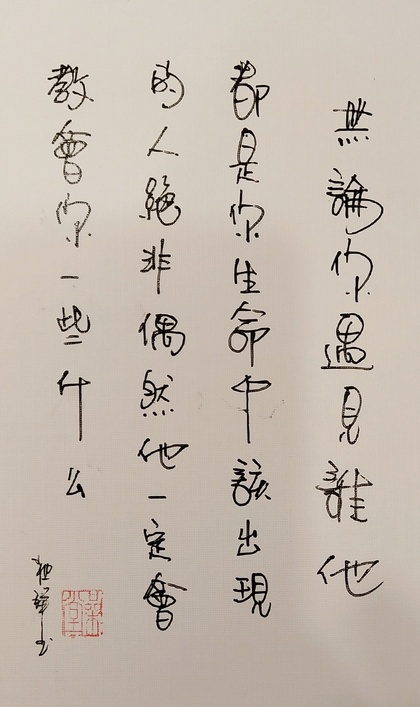 無論你遇見誰他
都是你生命中該出現
的人絕非偶然他一定會
教會你一些什么